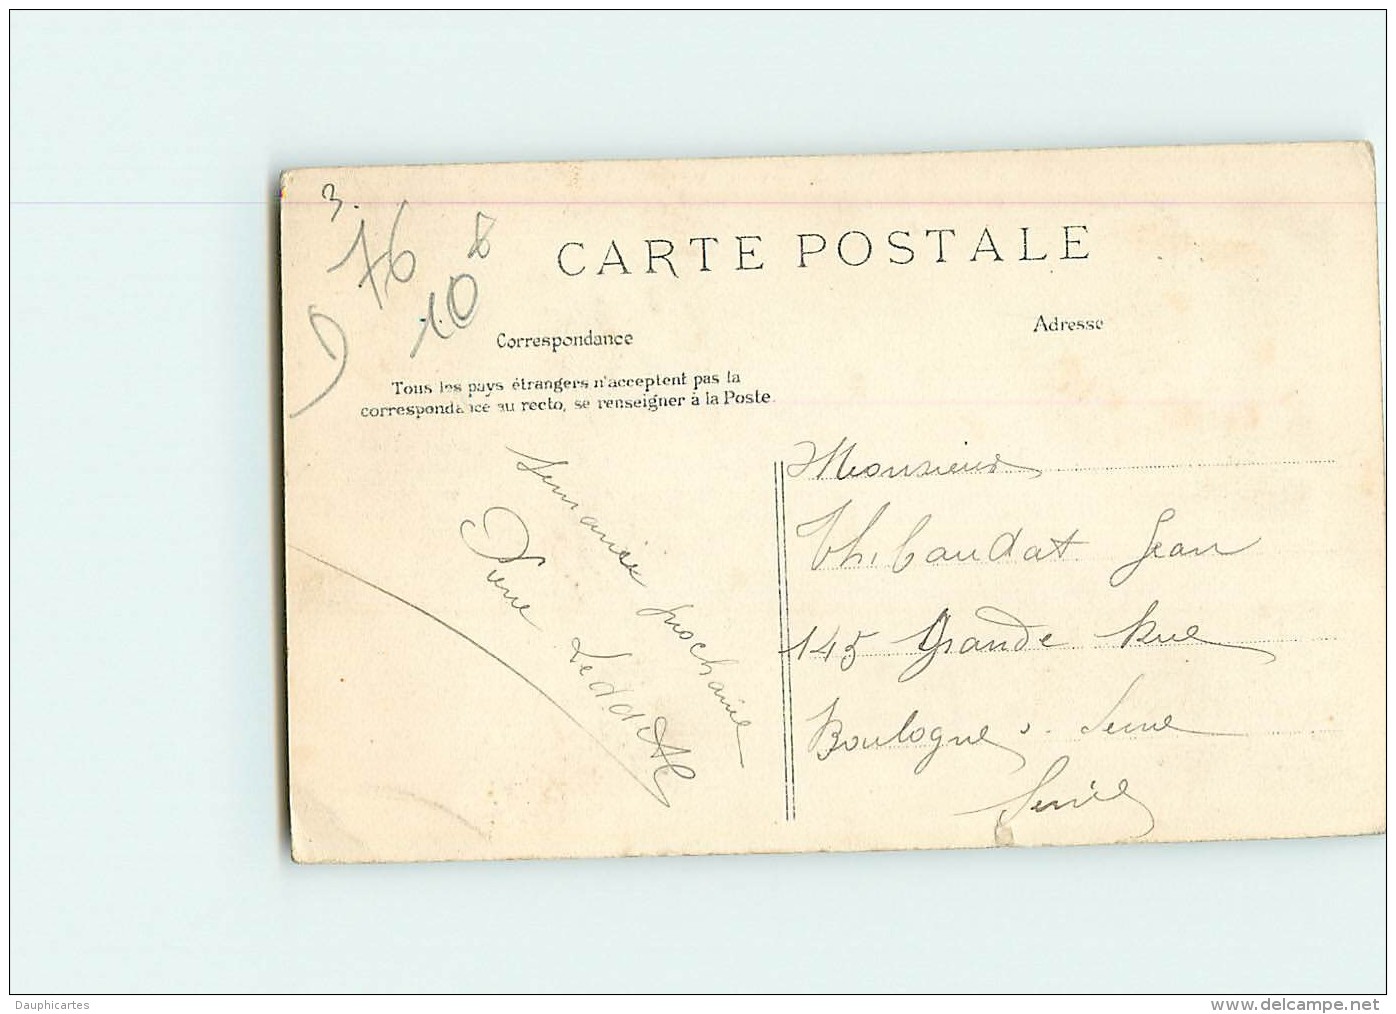 3.
76
10
CARTE POSTALE
Correspondance
Adresse
Tous les pays étrangers n'acceptent pas la
correspondance au recto, se renseigner à la Poste.
Semaine prochaine
Monsieur
Thibaudat Jean
145 Grande Rue
Boulogne s. Seine
Seine
Dauphicartes
www.delcampe.net